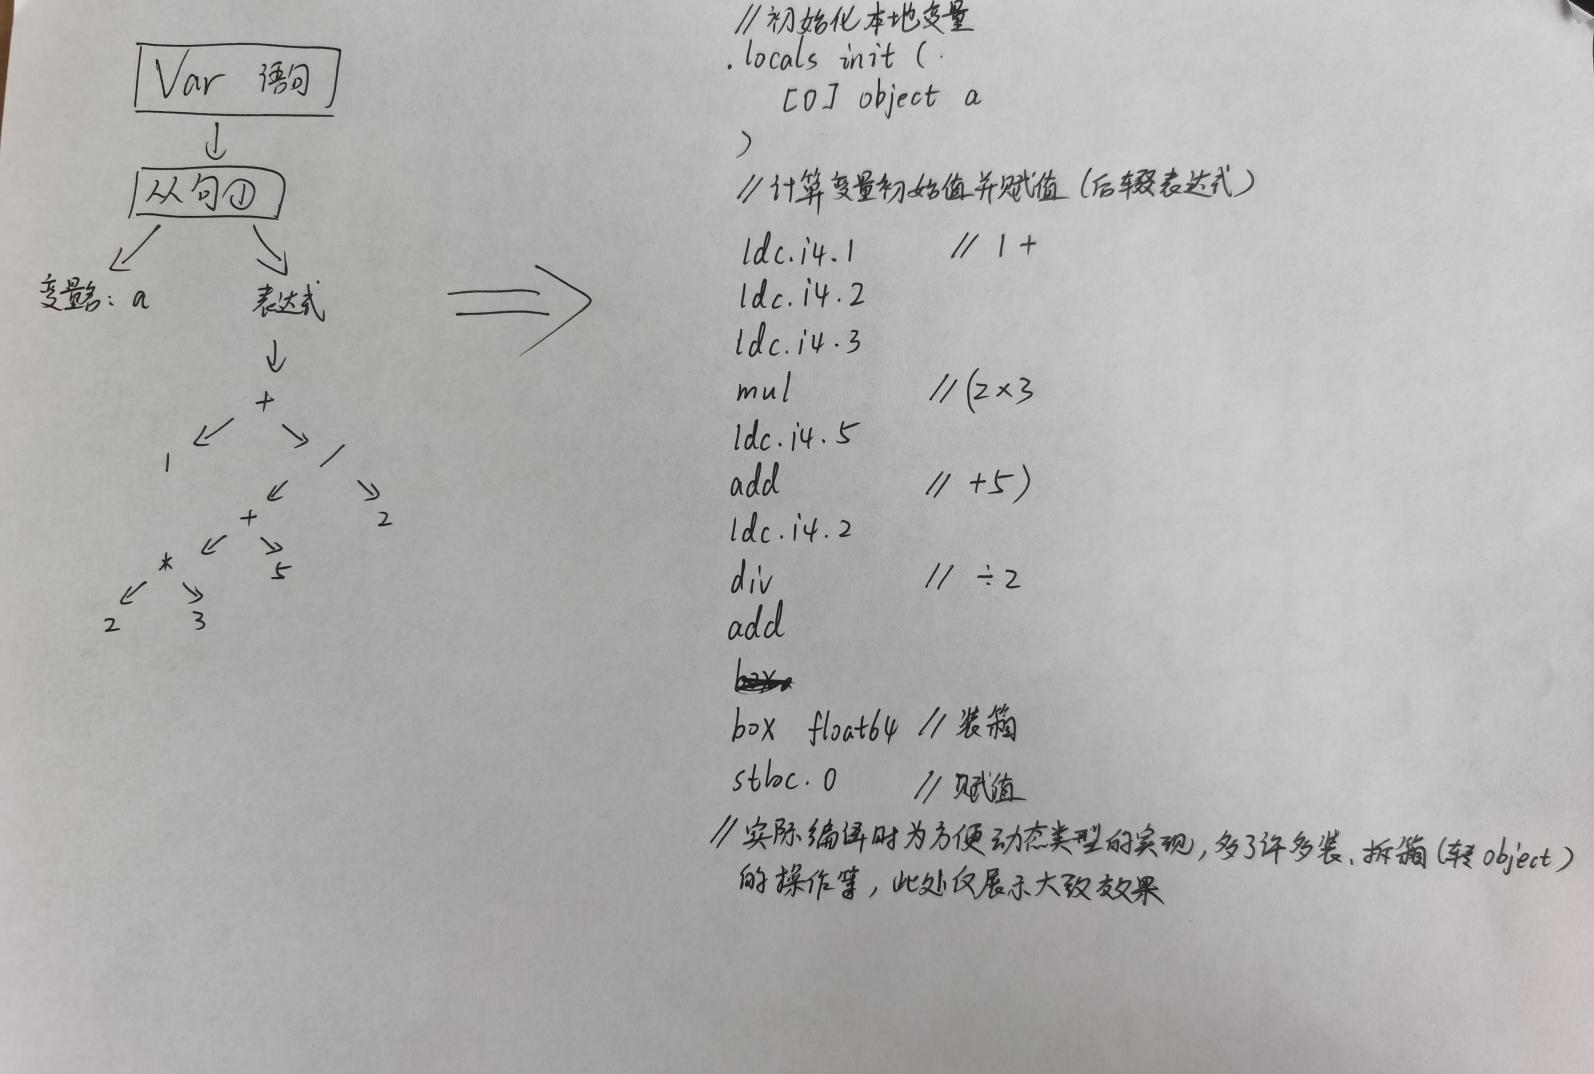 Var 语句
从句①
变量名：a
表达式
+
1
/
+
2
*
5
2
3
//初始化本地变量
.locals init (
[0] object a
)
//计算变量初始值并赋值(后缀表达式)
ldc.i4.1 // 1 +
ldc.i4.2
ldc.i4.3
mul //(2×3
ldc.i4.5
add // +5)
ldc.i4.2
div // ÷2
add
box float64 // 装箱
stloc.0 // 赋值
//实际编译时为方便动态类型的实现，多了许多装、拆箱(转object)
的操作等，此处仅展示大致效果